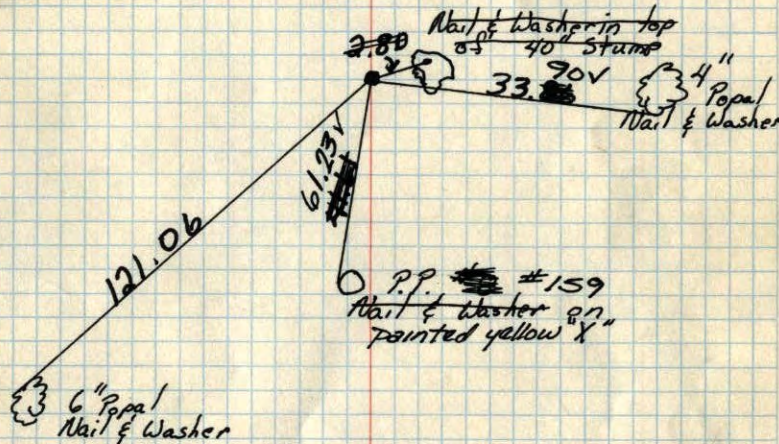 Nail & Washer in top
of 40" Stump
2.80
33.90✓
4"
Popal
Nail & Washer
61.23✓
121.06
P.P. #159
Nail & Washer on
painted yellow "X"
6" Popal
Nail & Washer